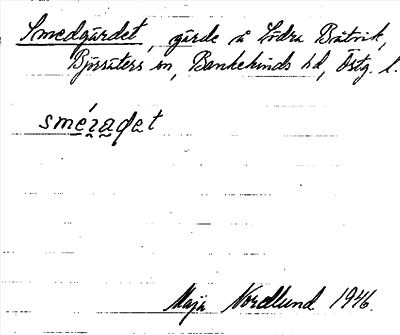 Smedgärdet, gärde å Södra Båtvik,
Bjärsäters sn, Bankekinds hd, Östg. l.
sméragẹt
Maja Nordlund 1946.